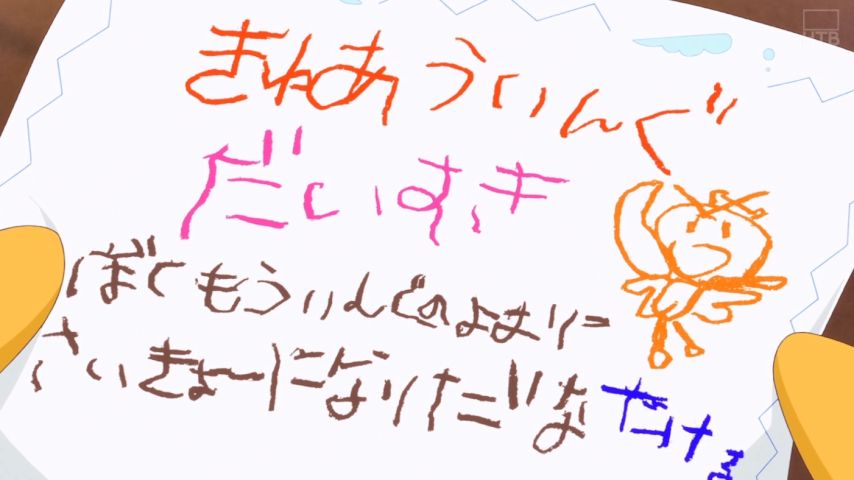 HTB
きゅあういんぐ
だいすき
ぼくもういんぐのよおに
さいきょーになりたいな たける